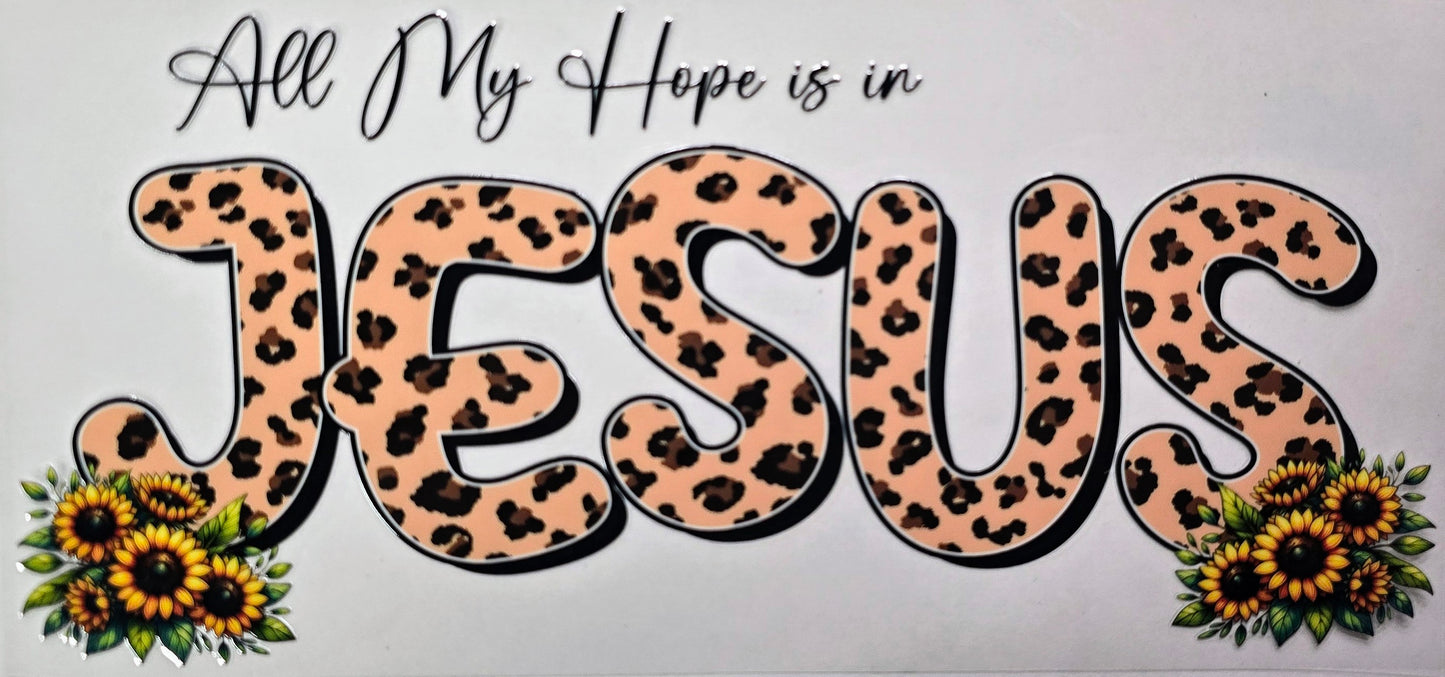 All My Hope is in
JESUS